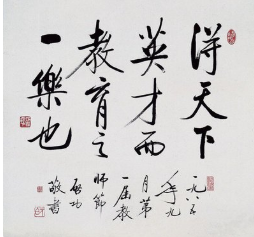 得天下
英才而
教育之
一樂也
一九八五
年九
月第
一届教
師節
啟功
敬書